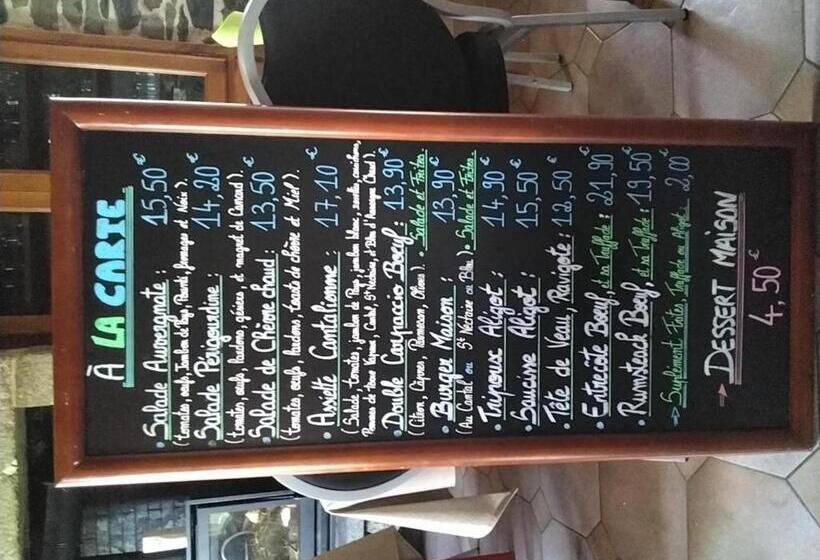 À LA CARTE
• Salade Auvergnate : 15,50 €
(tomates, oeufs, Jambon de Pays, fromages et Noix).
• Salade Périgourdine : 14,20 €
(tomates, oeufs, lardons, gésiers, et magret de Canard).
• Salade de Chèvre chaud : 13,50 €
(tomates, oeufs, lardons, toasts de chèvre et Miel).
• Assiette Cantalienne : 17,10 €
(Salade, tomates, jambon de Pays, jambon blanc, cornichons,
Pommes de terre Vapeur, Cantal, St Nectaire, et Bleu d'Auvergne Chaud).
• Double Carpaccio Boeuf : 13,90 €
(Citron, Câpres, Parmesan, Olives). • Salade et Frites.
• Burger Maison : 13,90 €
(Au Cantal ou St Nectaire ou Bleu) • Salade et Frites.
• Tripoux Aligot : 14,90 €
• Saucisse Aligot : 15,50 €
• Tête de Veau, Ravigote : 12,50 €
• Entrecôte Boeuf, et sa Truffade : 21,90 €
• Rumsteack Boeuf, et sa Truffade : 19,50 €
→ Suplément Frites, Truffade ou Aligot : 2,00 €
→ DESSERT MAISON
4,50 €